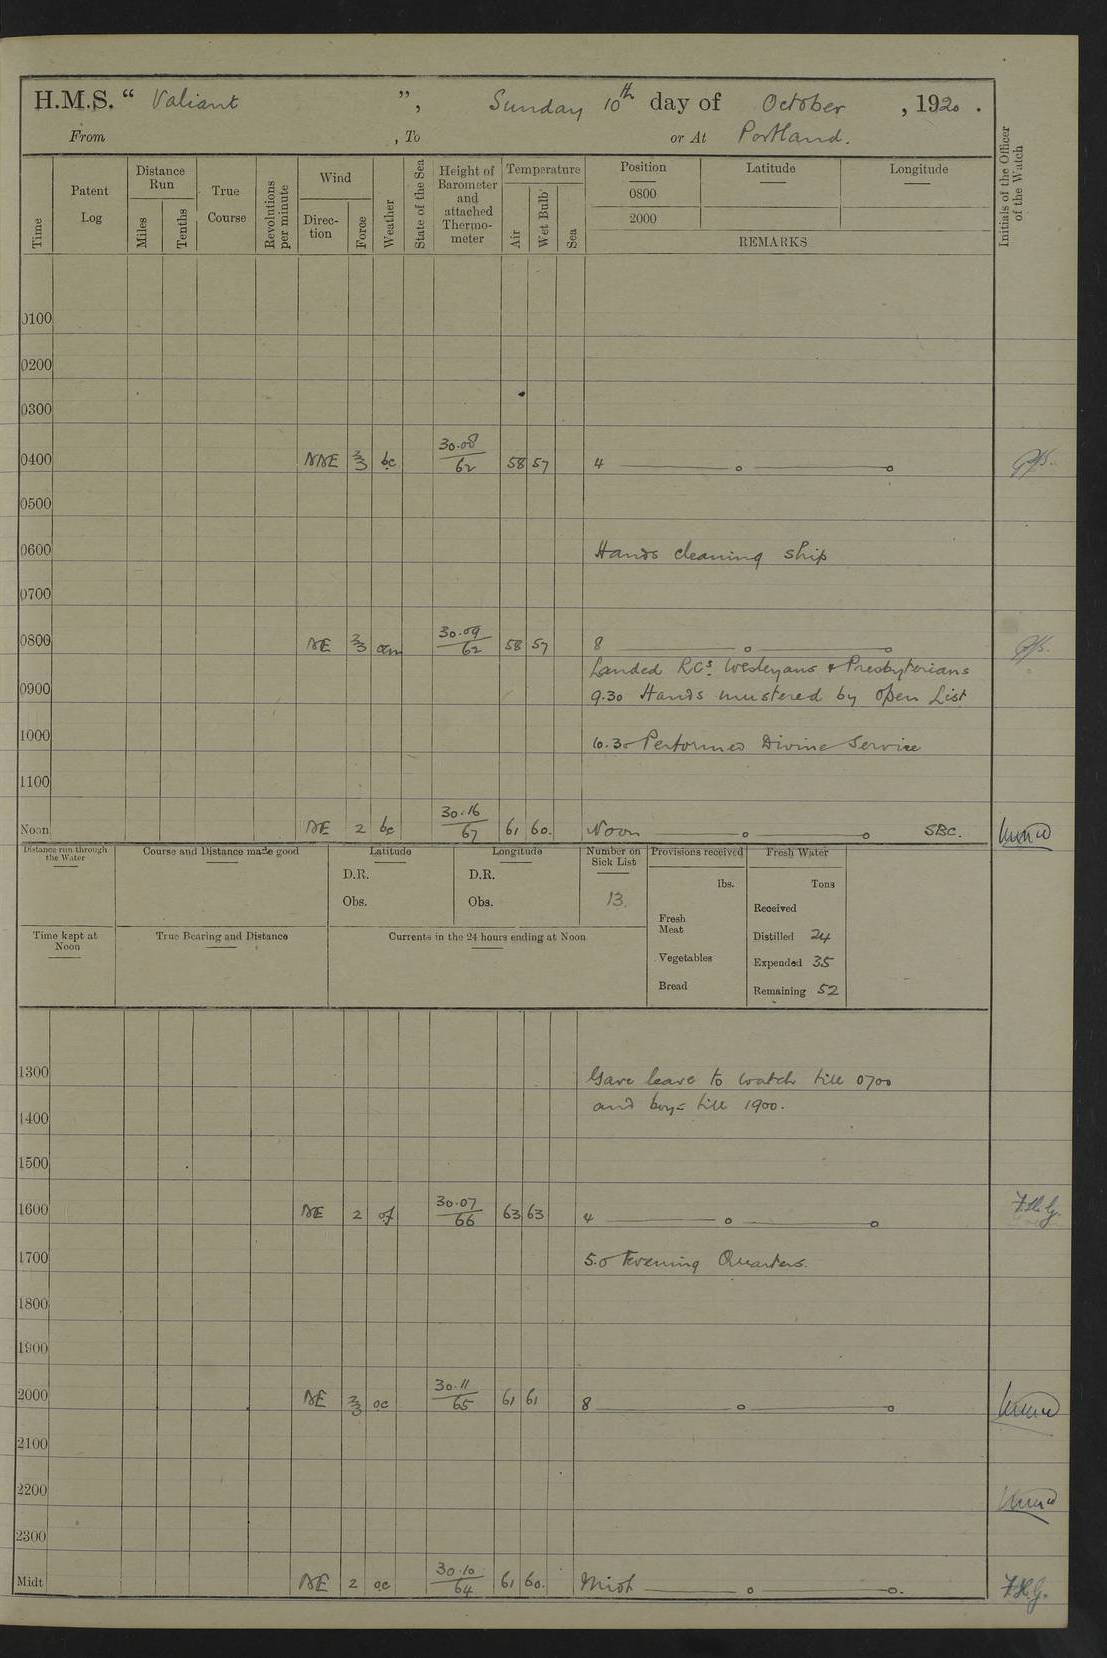 H.M.S. “ Valiant ”, Sunday 10th day of October , 1920 .
From , To or At Portland.
Time
Patent Log
Distance Run
Miles
Tenths
True Course
Revolutions per minute
Wind
Direc- tion
Force
Weather
State of the Sea
Height of Barometer and attached Thermo- meter
Temperature
Air
Wet Bulb
Sea
Position
0800
2000
Latitude
Longitude
REMARKS
Initials of the Officer of the Watch
0100
0200
0300
0400 NNE 2/3 bc 30.08/62 58 57 4
0500
0600 Hands cleaning ship
0700
0800 NE 2/3 om 30.09/62 58 57 8
Landed RCs. Wesleyans & Presbyterians
0900 9.30 Hands mustered by Open List
1000 10.30 Performed Divine Service
1100
Noon NE 2 bc 30.16/67 61 60. Noon SBC.
Distance run through the Water
Course and Distance made good
Latitude
D.R.
Obs.
Longitude
D.R.
Obs.
Number on Sick List
13.
Provisions received
lbs.
Fresh Meat
Vegetables
Bread
Fresh Water
Tons
Received
Distilled 24
Expended 35
Remaining 52
Time kept at Noon
True Bearing and Distance
Currents in the 24 hours ending at Noon
1300 Gave leave to watch till 0700
and boys till 1900.
1400
1500
1600 NE 2 of 30.07/66 63 63 4
1700 5.0 Evening Quarters.
1800
1900
2000 NE 2/3 oc 30.11/65 61 61 8
2100
2200
2300
Midt NE 2 oc 30.10/64 61 60. Midt